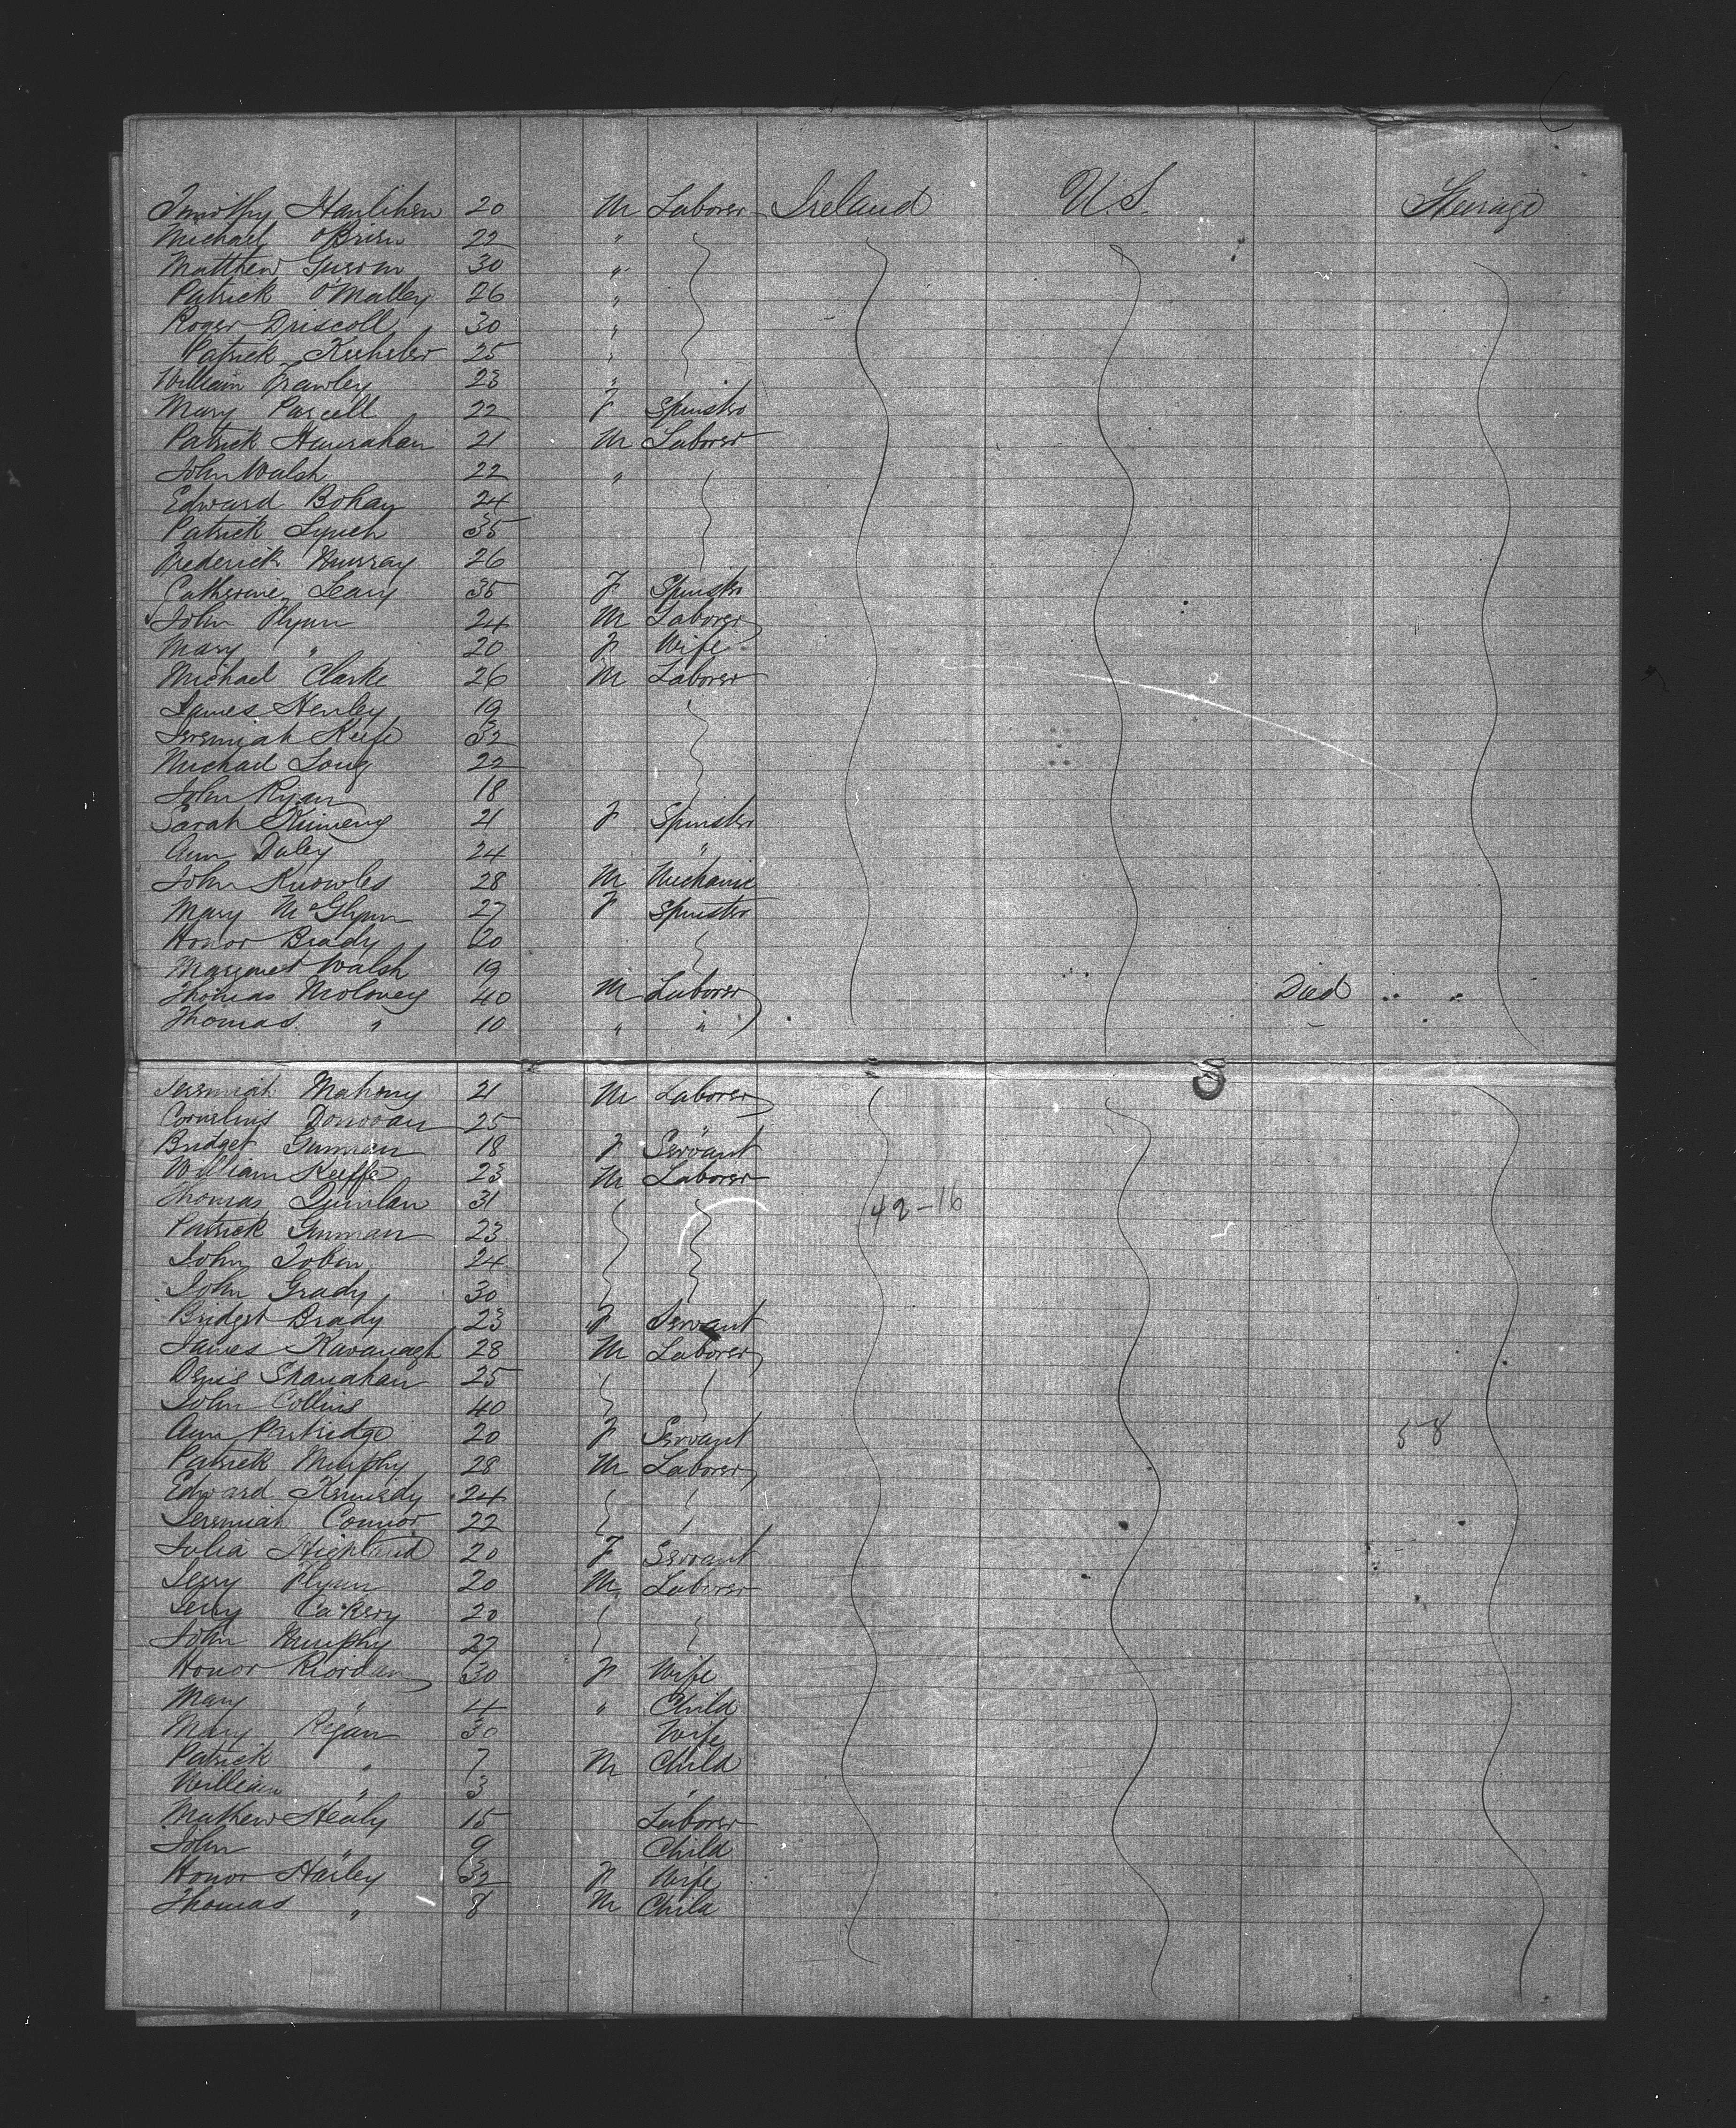 Timothy Hanlihen 20 M Laborer Ireland U.S. Steerage
Michael O'Brien 22 "
Matthew 30 "
Patrick O'Malley 26 "
Roger Driscoll 30 "
Patrick 25 "
William Frawley 23 "
Mary Purcell 22 F Spinster
Patrick Hanrahan 21 M Laborer
John Walsh 22 "
Edward Bohan 24
Patrick Lynch 35
Frederick Murray 26
Catherine Leary 35 F Spinster
John Flynn 24 M Laborer
Mary " 20 F Wife
Michael Clarke 26 M Laborer
James Henley 19
Jeremiah Keefe 32
Michael Long 22
John Ryan 18
Sarah 21 F Spinster
Ann Daley 24 "
John Knowles 28 M Mechanic
Mary McGlynn 27 F Spinster
Honor Brady 20
Margaret Walsh 19
Thomas Moloney 40 M Laborer Died " "
Thomas " 10 " "
Jeremiah Mahony 21 M Laborer
Cornelius Donovan 25
Bridget 18 F Servant
William Keeffe 23 M Laborer
Thomas Quinlan 31 42-16
Patrick 23
John Tobin 24
John Grady 30
Bridget Brady 23 F Servant
James Kavanagh 28 M Laborer
Denis Shanahan 25
John Collins 40
Ann Partridge 20 F Servant 58
Patrick Murphy 28 M Laborer
Edward Kennedy 24
Jeremiah Connor 22
Julia Highland 20 F Servant
Jerry Flynn 20 M Laborer
Jerry 20
John Murphy 27
Honor Riordan 30 F Wife
Mary " 4 " Child
Mary Ryan 30 Wife
Patrick " 7 M Child
William " 3 "
Mathew Healy 15 Laborer
John " 9 Child
Honor Hailey 32 F Wife
Thomas " 8 M Child